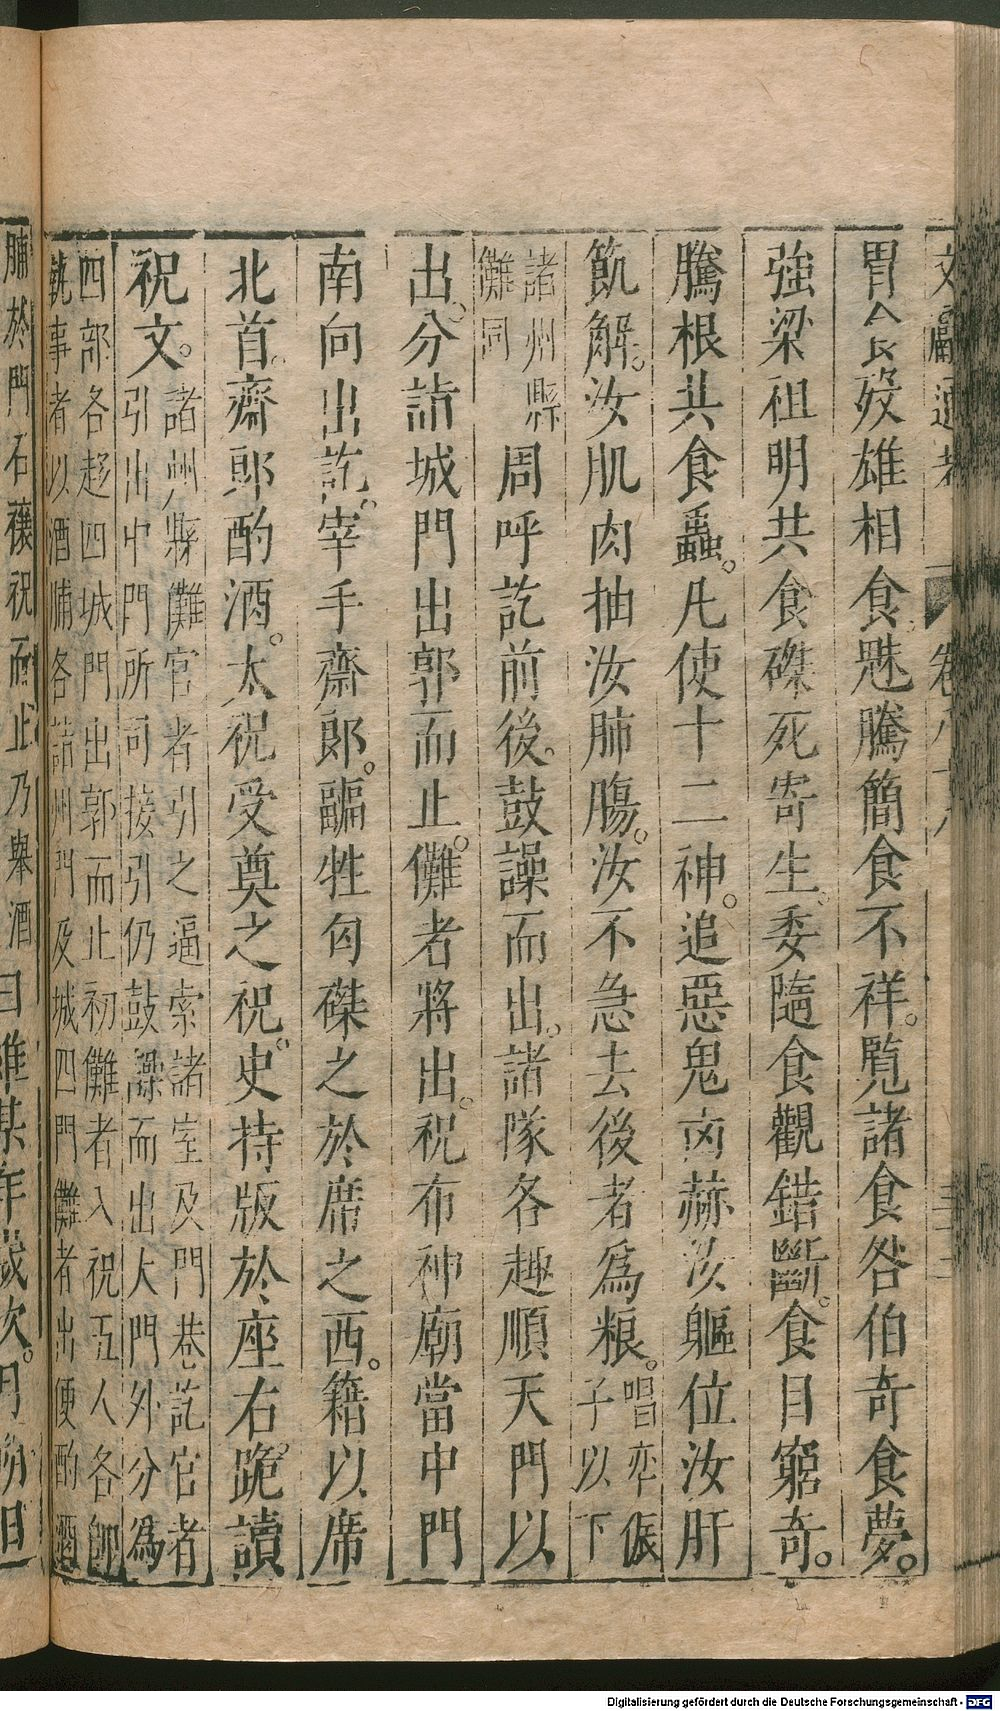 文獻通考 卷八十八
胃食殁雄相食魅騰簡食不祥。覧諸食咎伯奇食夢。
強梁祖明共食磔死寄生。委隨食觀錯斷。食目窮奇。
騰根共食蠱。凡使十二神。追惡鬼㐫赫汝軀位汝肝
飢解。汝肌肉抽汝肺腸。汝不急去後者爲粮。唱 侲
子以下
諸州縣
儺同
周呼訖前後。鼓譟而出。諸隊各趣順天門以
出。分詣城門出郭而止。儺者將出。祝布神廟當中門
南向出訖。宰手齋郎。疈牲匈磔之於席之西。籍以席
北首。齋郎酌酒。太祝受奠之祝。史持版於座右跪。讀
祝文。
諸州縣儺官者引之遍索諸室及門巷訖官者
引出中門所司接引仍鼓譟而出大門外分爲
四部各趍四城門出郭而止初儺者入祝五人各帥
執事者以酒脯各詣州門及城四門儺者出便酌酒
脯於門右禳祝而止乃舉酒
曰維某年歲次。月朔日
Digitalisierung gefördert durch die Deutsche Forschungsgemeinschaft - DFG